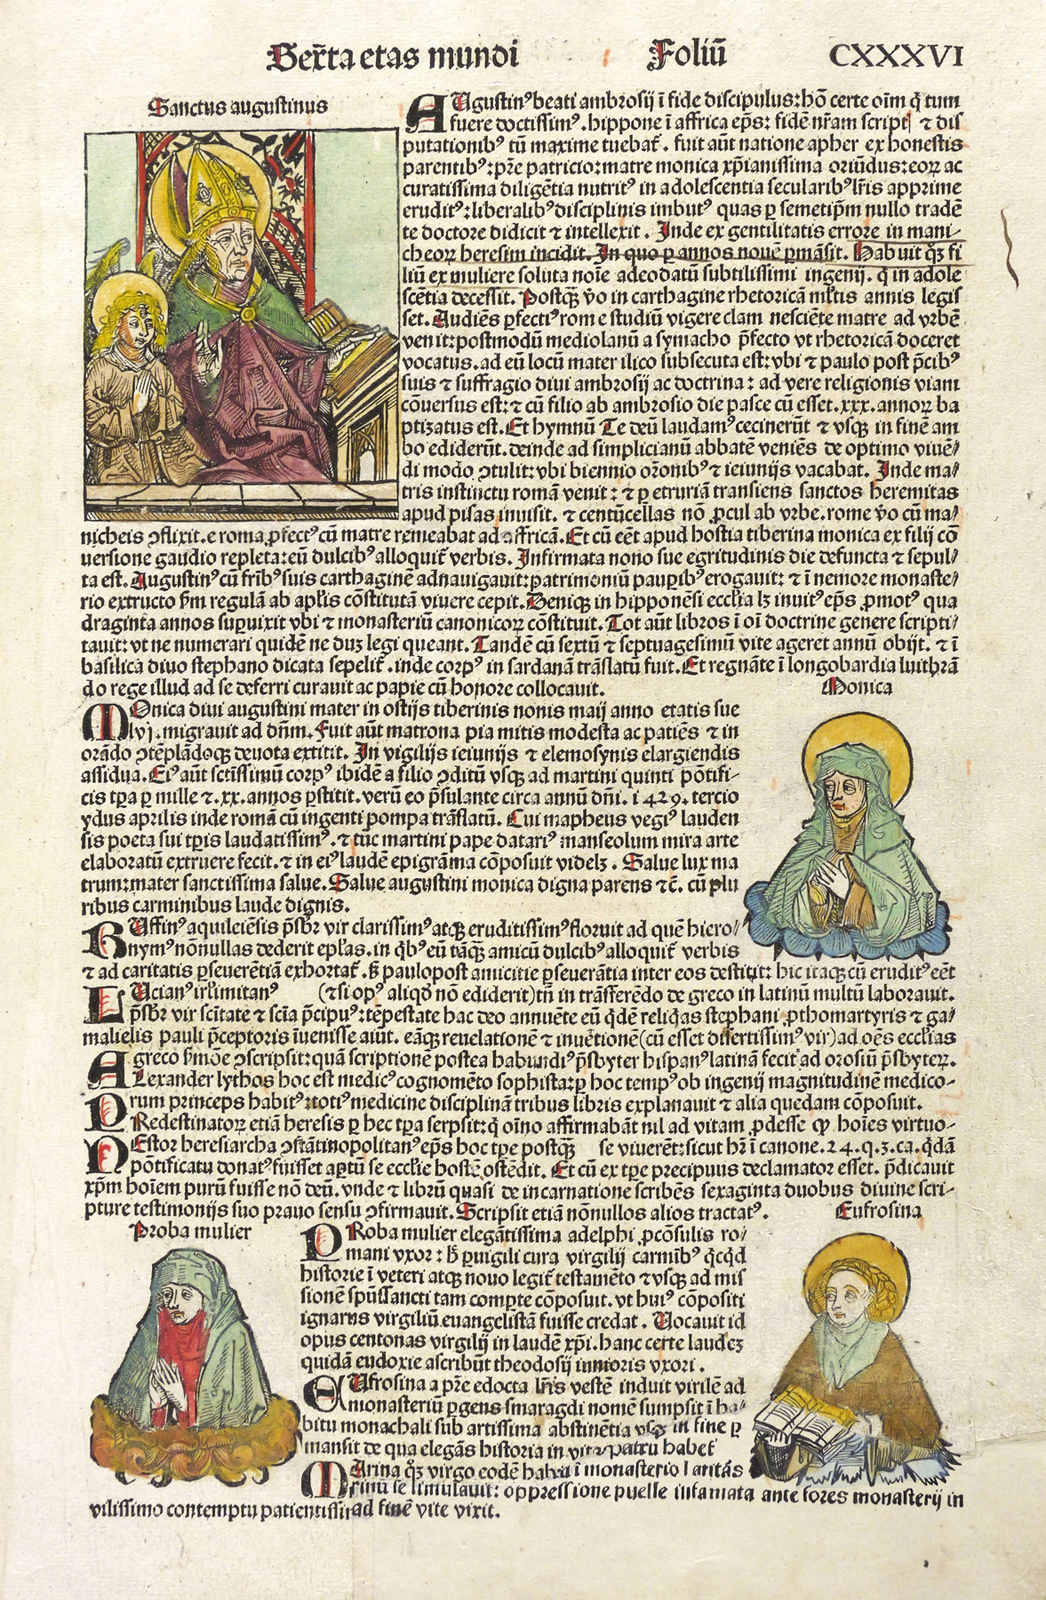 Sexta etas mundi Foliũ CXXXVI
Sanctus augustinus
AUgustinꝰ beati ambrosij ĩ fide discipulus: hõ certe oĩm q̃ tum
fuere doctissimꝰ. hippone ĩ affrica ep̃s: fidẽ nr̃am script ⁊ dis
putationibꝰ tũ maxime tuebat̃. fuit aũt natione apher ex honestis
parentibꝰ: pr̃e patricio: matre monica xp̃ianissima oriũdus: eoꝝ ac
curatissima diligẽtia nutritꝰ in adolescentia secularibꝰ lr̃is apprime
eruditꝰ: liberalibꝰ disciplinis imbutꝰ quas ꝑ semetip̃m nullo tradẽ
te doctore didicit ⁊ intellexit. Inde ex gentilitatis errore in mani-
cheoꝝ heresim incidit. In quo ꝑ annos nouẽ ꝑmãsit. Habuit q̃ꝫ fi
liũ ex muliere soluta noĩe adeodatũ subtilissimi ingenij. q̃ in adole
scẽtia decessit. Postqꝫ ṽo in carthagine rhetoricã ml̃tis annis legis
set. Audiẽs ꝑfecti rome studiũ vigere clam nesciẽte matre ad vrbẽ
venit: postmodũ mediolanũ a symacho p̃fecto vt rhetoricã doceret
vocatus. ad eũ locũ mater ilico subsecuta est: vbi ⁊ paulo post p̃cibꝰ
suis ⁊ suffragio diui ambrosij ac doctrina: ad vere religionis viam
cõuersus est: ⁊ cũ filio ab ambrosio die pasce cũ esset .xxx. annoꝝ ba
ptizatus est. Et hymnũ Te deũ laudamꝰ cecinerũt ⁊ vsqꝫ in finẽ am
bo ediderũt. deinde ad simplicianũ abbatẽ veniẽs de optimo viuẽ/
di modo ꝯtulit: vbi biennio or̃onibꝰ ⁊ ieiunijs vacabat. Inde ma/
tris instinctu romã venit: ⁊ ꝑ etruriã transiens sanctos heremitas
apud pisas inuisit. ⁊ centũcellas nõ ꝓcul ab vrbe. rome ṽo cũ ma/
nicheis ꝯflixit. e roma ꝓfectꝰ cũ matre remeabat ad affricã. Et cũ eẽt apud hostia tiberina monica ex filij cõ
uersione gaudio repleta: eũ dulcibꝰ alloquit̃ verbis. Infirmata nono sue egritudinis die defuncta ⁊ sepul/
ta est. Augustinꝰ cũ fr̃ibꝰ suis carthaginẽ adnauigauit: patrimoniũ pauꝑibꝰ erogauit: ⁊ ĩ nemore monaste/
rio extructo s̃m regulã ab apl̃is cõstitutã viuere cepit. Deniqꝫ in hipponẽsi eccl̃ia lꝫ inuitꝰ ep̃s ꝓmotꝰ qua
draginta annos suꝑuixit vbi ⁊ monasteriũ canonicoꝝ cõstituit. Tot aũt libros ĩ oĩ doctrine genere scripti/
tauit: vt ne numerari quidẽ ne duꝫ legi queant. Tandẽ cũ sextũ ⁊ septuagesimũ vite ageret annũ obijt. ⁊ ĩ
basilica diuo stephano dicata sepelit̃. inde corpꝰ in sardanã trãslatũ fuit. Et regnãte ĩ longobardia luithrã
do rege illud ad se deferri curauit ac papie cũ honore collocauit.
Monica
MOnica diui augustini mater in ostijs tiberinis nonis maij anno etatis sue
lvj. migrauit ad dñm. Fuit aũt matrona pia mitis modesta ac patiẽs ⁊ in
orãdo ꝯtẽplãdoqꝫ deuota extitit. In vigilijs ieiunijs ⁊ elemosynis elargiendis
assidua. Eiꝰ aũt sctĩssimũ corpꝰ ibidẽ a filio ꝯditũ vsqꝫ ad martini quinti põtifi-
cis tp̃a ꝑ mille ⁊ .xx. annos ꝑstitit. verũ eo p̃sulante circa annũ dñi. 1429. tercio
ydus aprilis inde romã cũ ingenti pompa trãslatũ. Cui mapheus vegiꝰ lauden
sis poeta sui tp̃ris laudatissimꝰ. ⁊ tũc martini pape datariꝰ manseolum mira arte
elaboratũ extruere fecit. ⁊ in eiꝰ laudẽ epigrãma cõposuit videlꝫ. Salue lux ma
trum: mater sanctissima salue. Salue augustini monica digna parens ⁊c̃. cũ plu
ribus carminibus laude dignis.
RUffinꝰ aquileiẽsis p̃sbr̃ vir clarissimꝰ atqꝫ eruditissimꝰ floruit ad quẽ hiero/
nymꝰ nõnullas dederit ep̃las. in q̃bꝰ eũ tãqꝫ amicũ dulcibꝰ alloquit̃ verbis
⁊ ad caritatis ꝑseuerẽtiã exhortat̃. s̃ paulopost amicitie ꝑseuerãtia inter eos destitit: hic itaqꝫ cũ eruditꝰ eẽt
LUcianꝰ irl̃imitanꝰ (⁊ si opꝰ aliqd̃ nõ ediderit) tñ in trãsferẽdo de greco in latinũ multũ laborauit.
p̃sbr̃ vir scĩtate ⁊ scĩa p̃cipuꝰ: tẽpestate hac deo annuẽte eũ q̃dẽ reliq̃as stephani ꝓthomartyris ⁊ ga/
malielis pauli p̃ceptoris ĩuenisse aiũt. eãqꝫ reuelationẽ ⁊ inuẽtionẽ (cũ esset disertissimꝰ vir) ad oẽs eccl̃ias
greco s̃mõe ꝯscripsit: quã scriptionẽ postea habundiꝰ p̃sbyter hispanꝰ latinã fecit ad orosiũ p̃sbyteꝝ.
ALexander lythos hoc est medicꝰ cognomẽto sophista: ꝑ hoc tempꝰ ob ingenij magnitudinẽ medico-
rum princeps habitꝰ: totiꝰ medicine disciplinã tribus libris explanauit ⁊ alia quedam cõposuit.
PRedestinatoꝝ etiã heresis ꝑ hec tp̃a serpsit: q̃ oĩno affirmabãt nil ad vitam ꝓdesse qꝫ hoĩes virtuo-
NEstor heresiarcha ꝯstãtinopolitanꝰ ep̃s hoc tp̃e postqꝫ se viuerẽt: sicut hr̃ ĩ canone. 24. q. 3. ca. q̃dã
põtificatu donatꝰ fuisset aꝑtũ se eccl̃ie hostẽ ostẽdit. Et cũ ex tp̃e precipuus declamator esset. p̃dicauit
xp̃m hoĩem purũ fuisse nõ deũ. vnde ⁊ librũ quasi de incarnatione scribẽs sexaginta duobus diuine scri-
pture testimonijs suo prauo sensu ꝯfirmauit. Scripsit etiã nõnullos alios tractatꝰ.
Eufrosina
Proba mulier
PRoba mulier elegãtissima adelphi ꝓcõsulis ro/
mani vxor: h̃ ꝑuigili cura virgilij carmĩbꝰ q̃cq̃d
historie ĩ veteri atqꝫ nouo legit̃ testamẽto ⁊ vsqꝫ ad mis
sionẽ sp̃ũssancti tam compte cõposuit. vt huiꝰ cõpositi
ignarus virgiliũ euangelistã fuisse credat. Uocauit id
opus centonas virgilij in laudẽ xp̃i. hanc certe laudeꝫ
quidã eudoxie ascribũt theodosij iunioris vxori.
EUfrosina a pr̃e edocta lr̃is vestẽ induit virilẽ ad
monasteriũ ꝑgens smaragdi nomẽ sumpsit ĩ ha/
bitu monachali sub artissima abstinẽtia vsqꝫ in fine ꝑ
mansit de qua elegãs historia in vit patrũ habet̃
MArina q̃ꝫ virgo eodẽ habitu ĩ monasterio latitãs
rinũ se simulauit: oppressione puelle infamata ante fores monasterij in
vilissimo contemptu patientissi ad finẽ vite vixit.